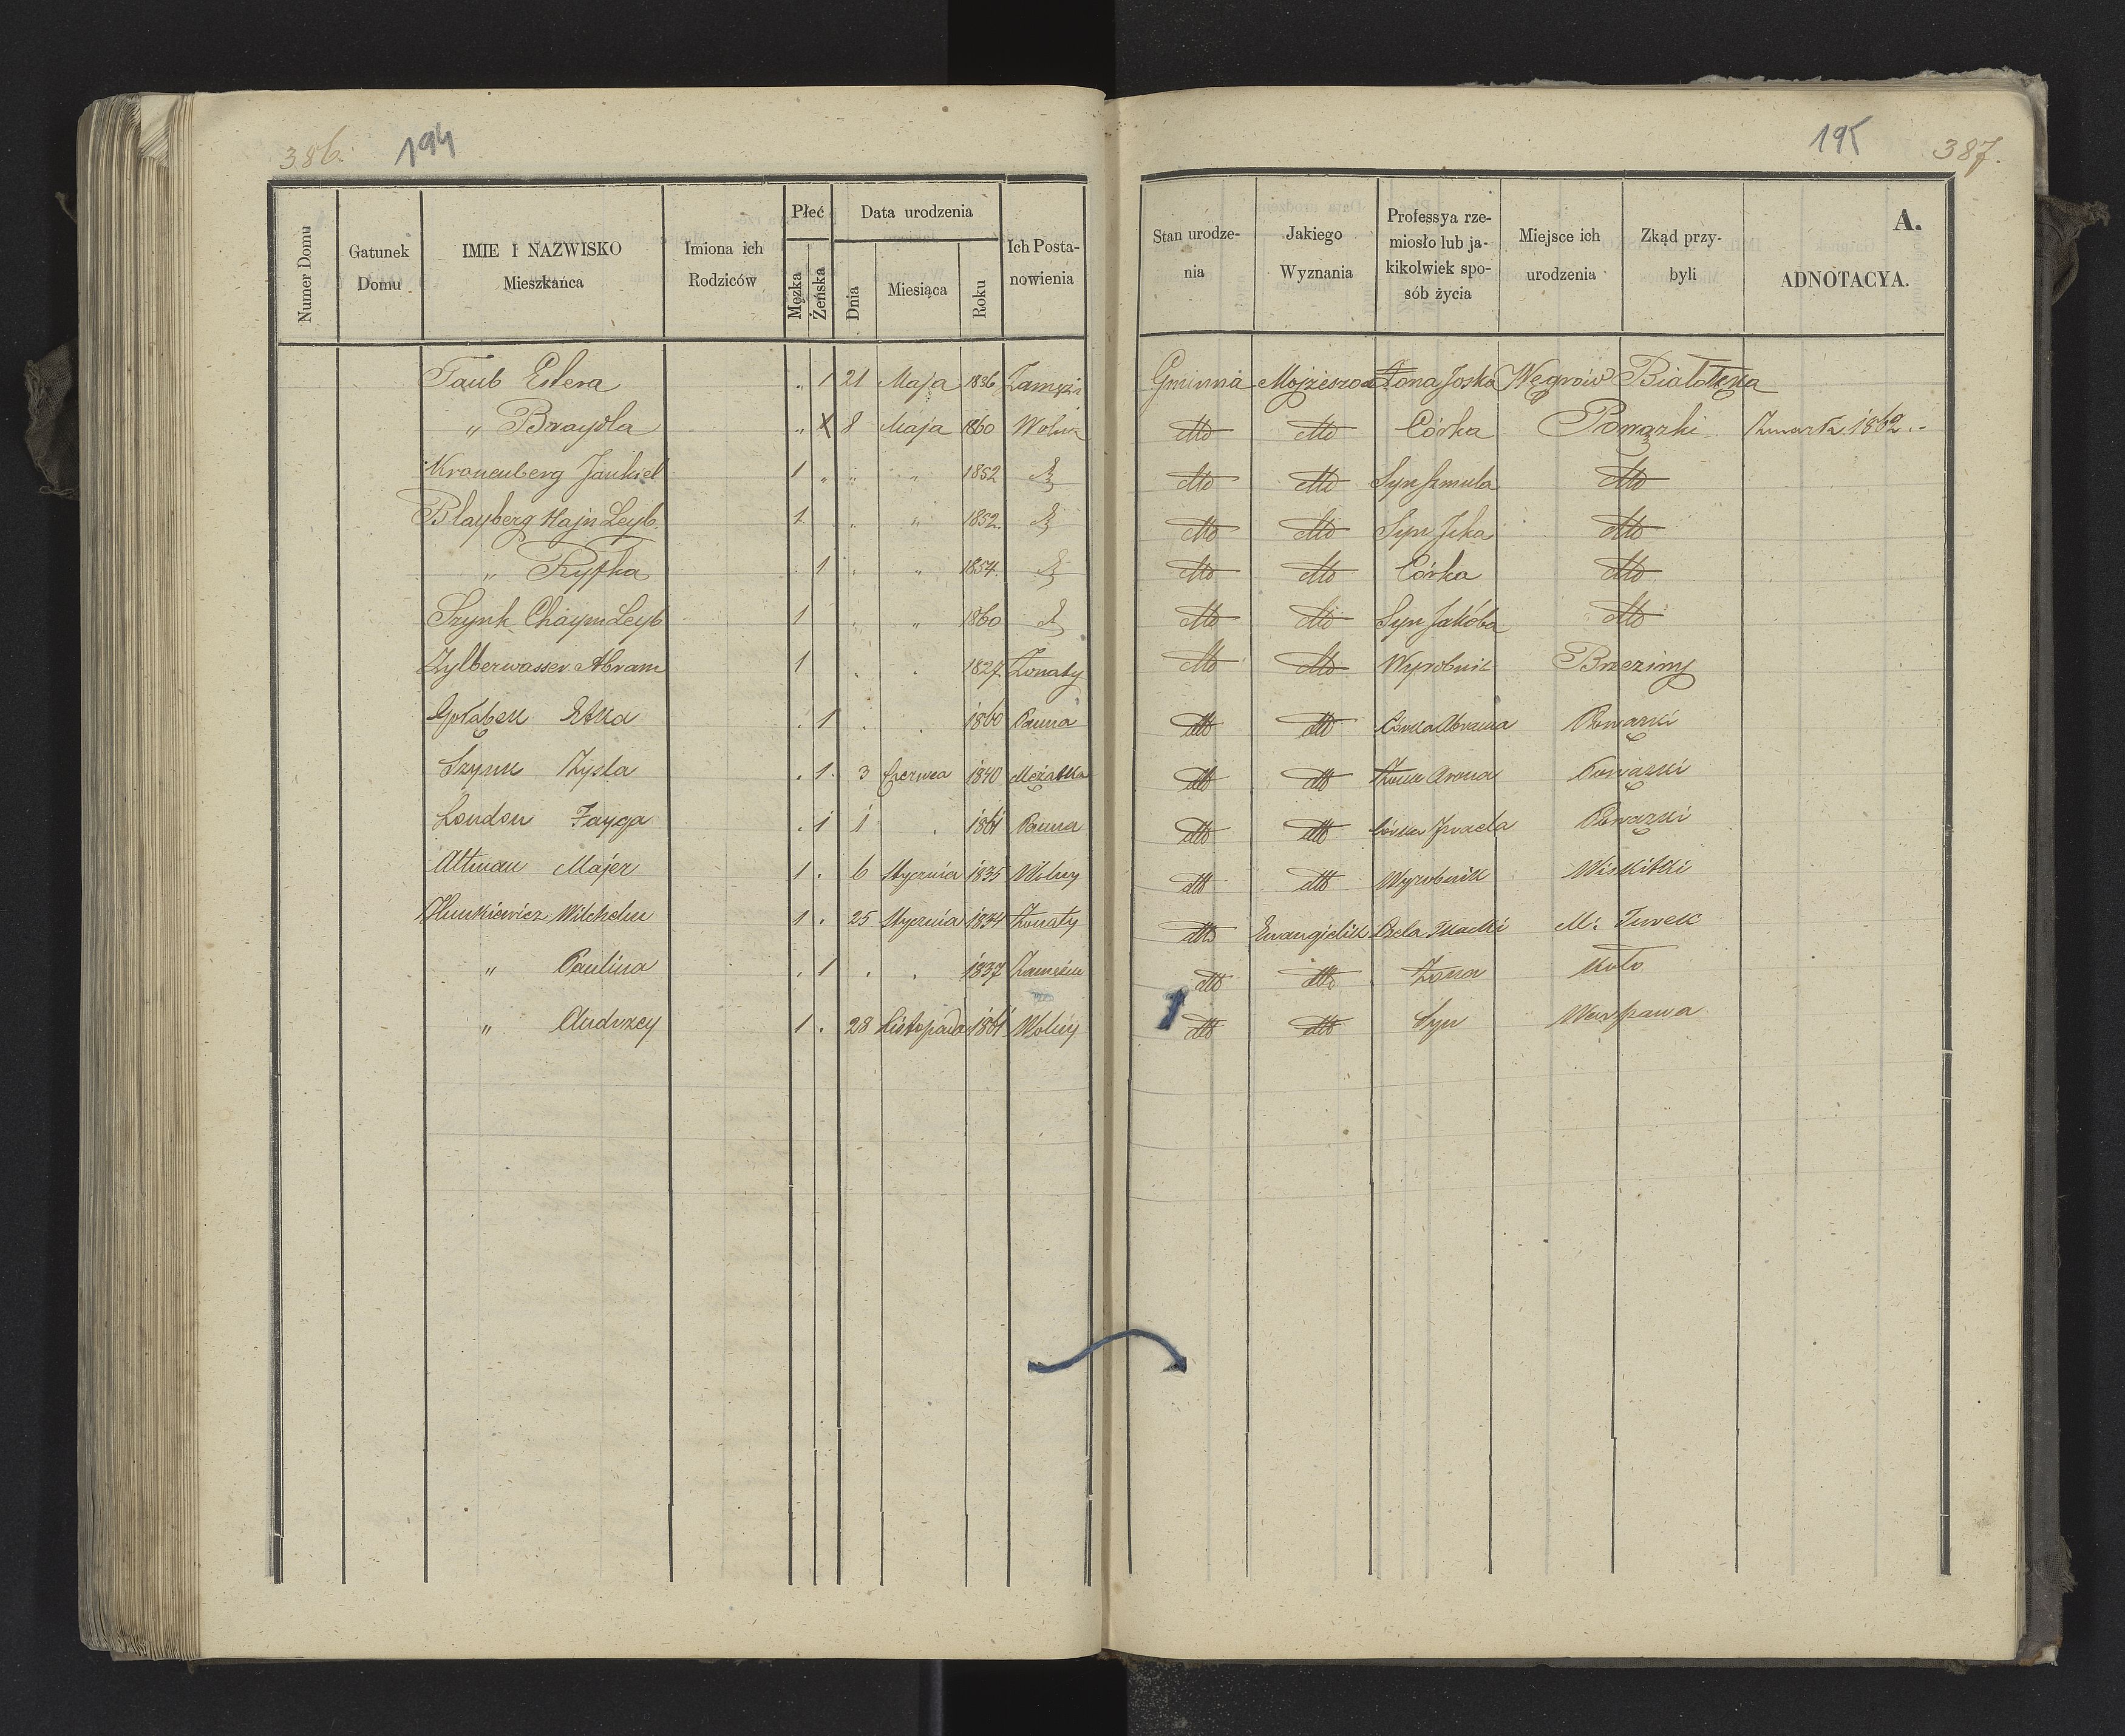 386. 194
Numer Domu Gatunek Domu IMIE I NAZWISKO Mieszkańca Imiona ich Rodziców Płeć Męzka Żeńska Data urodzenia Dnia Miesiąca Roku Ich Postanowienia
Taub Estera „ 1 21 Maja 1836 Zamężna
„ Braydla „ X 8 Maja 1860 Wolna
Kronenberg Jankiel 1 „ „ „ 1852
Blayberg Hajn Leyb. 1 „ „ 1852
„ Ryfka 1 „ „ 1854
Szynk Chaym Leyb 1 „ „ 1860
Zylberwasser Abram 1 . . 1827 Żonaty
Gołąbek Etka . 1 . . 1860 Panna
Szynk Zysla . 1 3 Czerwca 1840 Mężatka
London Fayga . 1 1 . 1861 Panna
Altman Majer 1 . 6 Stycznia 1835 Wolny
Wilchelm 1 . 25 Stycznia 1834 Żonaty
„ Paulina . 1 . . 1837
„ Andrzey 1 . 28 Listopada 1861 Wolny
195 387.
Stan urodzenia Jakiego Wyznania Professya rzemiosło lub jakikolwiek sposób życia Miejsce ich urodzenia Zkąd przybyli A. ADNOTACYA.
Gminna Mojżeszowe Żona Joska Węgrów Białołęka
dtto dtto Córka Powązki Zmarła 1862.
dtto dtto Syn Szmula dtto
dtto dtto Syn Icka dtto
dtto dtto Córka dtto
dtto dtto Syn Jakóba dtto
dtto dtto Wyrobnik Brzeziny
dtto dtto Córka Abrama Powązki
dtto dtto Żona Arona Powązki
dtto dtto Córka Izraela Powązki
dtto dtto Wyrobnik Wiskitki
dtto Ewangielik Czela Tkacki M: Turek
dtto dtto Żona Koło
dtto dtto Syn Warszawa